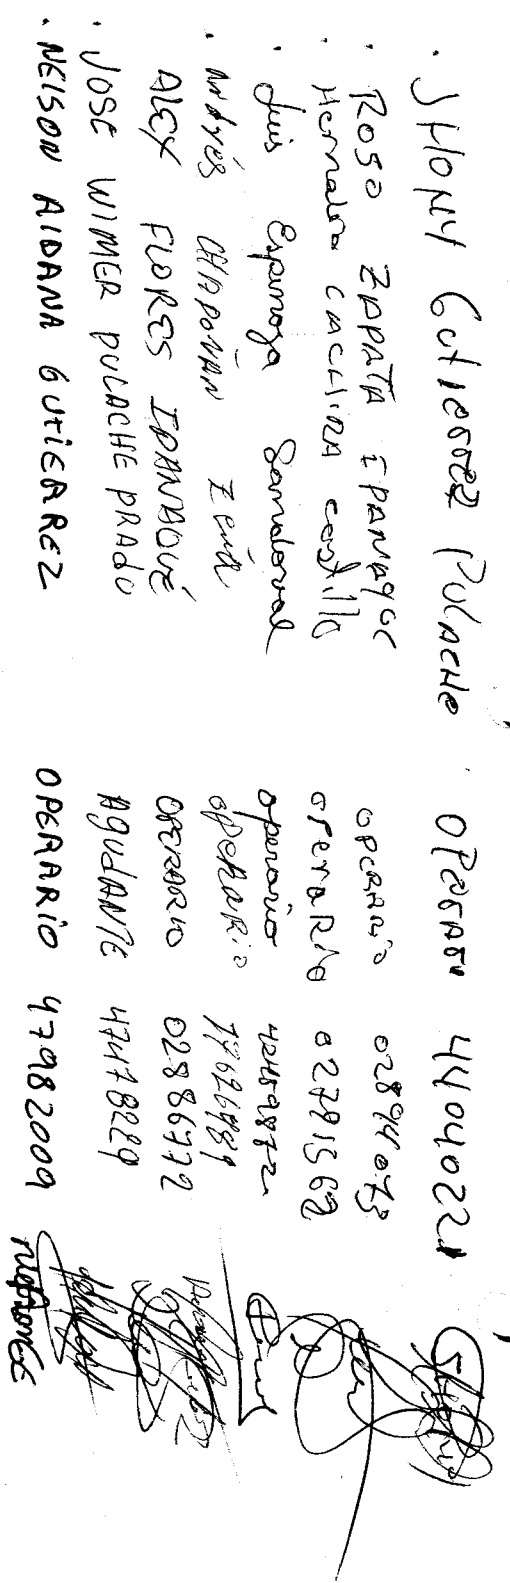 . JHONY Gutierrez PULACHE . OPERARI 44040221
. ROSO ZAPATA IPANAQUE OPERARIO 02894073
. Hernaldo CACHIRA castillo OPERARIO 02791562
. Luis Espinoza Sandoval operario
. Andrés CHAPOÑAN ZEÑA OPERARIO 17626989
ALEX FLORES IPANAQUÉ OPERARIO 02886772
. JOSE WIMER PULACHE PRADO AGUDANTE 47478229
. NELSON ALDANA GUTIERREZ OPERARIO 47982009